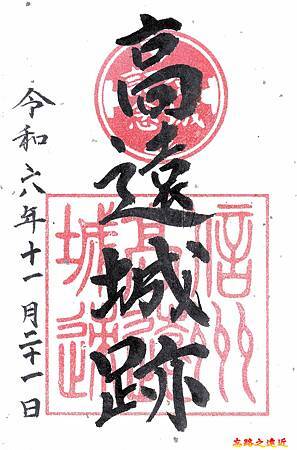 高遠城跡
令和六年十一月二十一日
信州
高遠
城迹
忘路之遠近